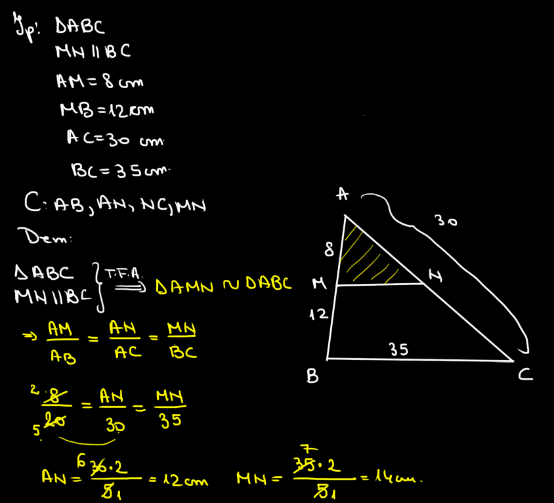 Ip: ΔABC
MN ∥ BC
AM = 8 cm
MB = 12 cm
AC = 30 cm
BC = 35 cm
C: AB, AN, NC, MN
Dem:
ΔABC
MN ∥ BC } T.F.A. ⟹ ΔAMN ~ ΔABC
⇒ AM/AB = AN/AC = MN/BC
2 8/20 5 = AN/30 = MN/35
AN = 6 30·2/5 1 = 12 cm MN = 7 35·2/5 1 = 14 cm.
A
30
8
M N
12
35
B C